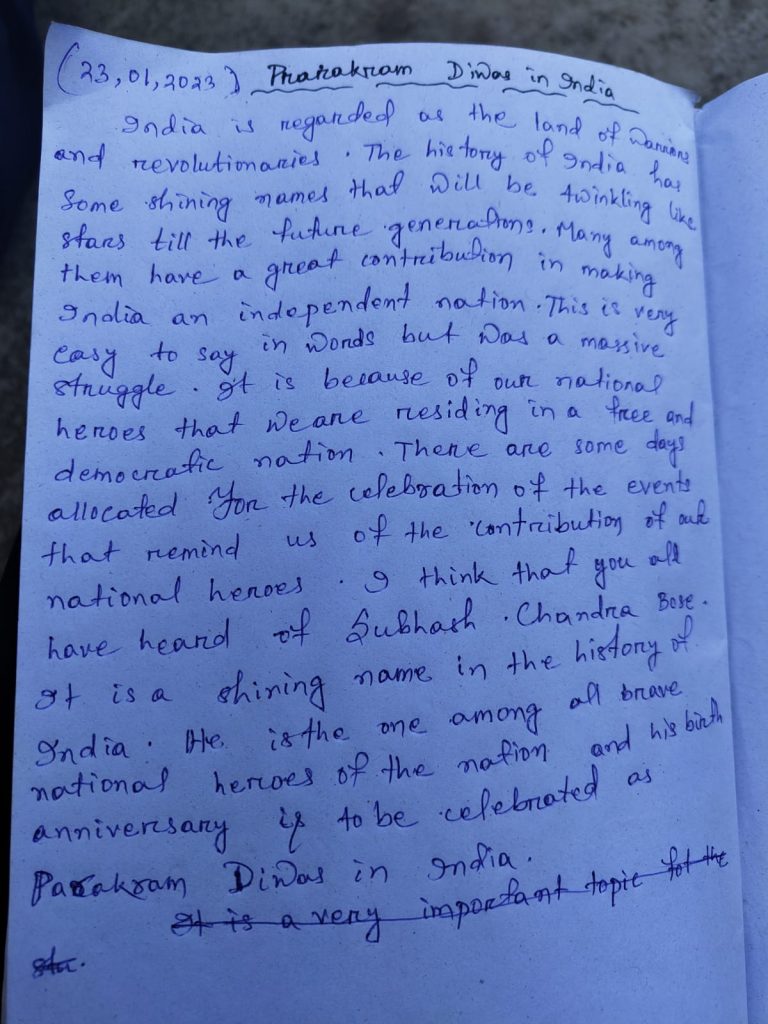 (23,01,2023) Prarakram Diwas in India
India is regarded as the land of warriors
and revolutionaries. The history of India has
Some shining names that will be twinkling like
stars till the future generations. Many among
them have a great contribution in making
India an independent nation. This is very
easy to say in words but was a massive
struggle. It is because of our national
heroes that we are residing in a free and
democratic nation. There are some days
allocated for the celebration of the events
that remind us of the contribution of our
national heroes. I think that you all
have heard of Subhash. Chandra Bose.
It is a shining name in the history of
India. He is the one among all brave
national heroes of the nation and his birth
anniversary is to be celebrated as
Parakram Diwas in India.
It is a very important topic for the
stu.